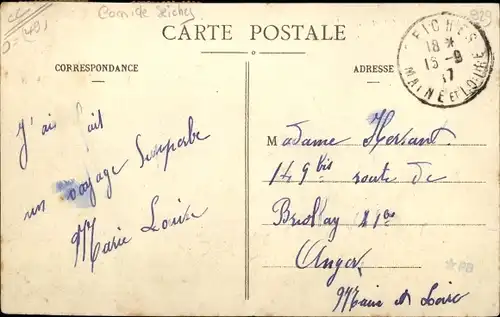 CARTE POSTALE
CORRESPONDANCE
ADRESSE
SEICHES
18 *
15 -9
17
MAINE ET LOIRE
J'ai fait
un voyage Superbe
Marie Louise
Madame Hersant
149 bis route de
Briollay
Angers
Maine et Loire